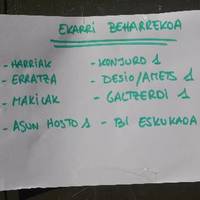 EKARRI BEHARREKOA
- HARRIAK
- ERRATZA
- MAKILAK
- ASUN HOSTO 1
- KONJURO 1
- DESIO/AMETS 1
- GALTZERDI 1
- BI ESKUKADA